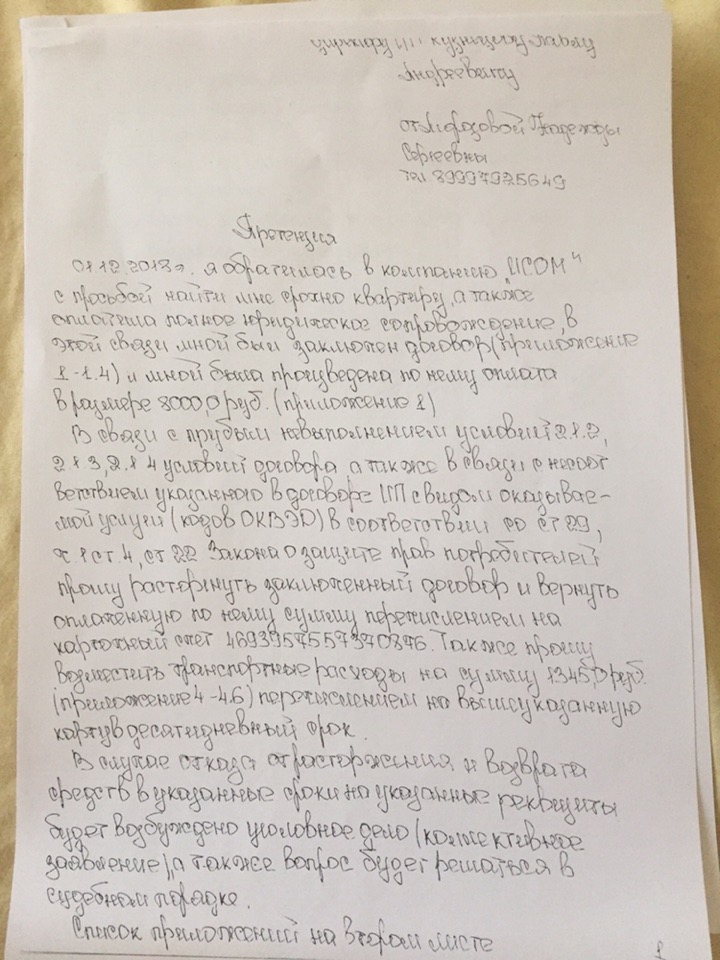 директору ИП Кузнецову Павлу
Андреевичу
от Морозовой Надежды
Сергеевны
тел. 89997925649
Претензия
01.12.2018г. я обратилась в компанию "ИСОМ"
с просьбой найти мне срочно квартиру, а также
оплатила полное юридическое сопровождение, в
этой связи мной был заключен договор (приложение
1-1.4) и мной была произведена по нему оплата
в размере 8000,0 руб. (приложение 1)
В связи с грубым невыполнением условий 2.1.2,
2.1.3, 2.1.4 условий договора а также в связи с несоот
ветствием указанного в договоре ИП с видом оказывае-
мой услуги (кодов ОКВЭД) в соответствии со ст 29,
ч 1 ст. 4, ст 22 Закона о защите прав потребителей
прошу расторгнуть заключенный договор и вернуть
оплаченную по нему сумму перечислением на
карточный счет 4693957557370876. Также прошу
возместить транспортные расходы на сумму 1345,0 руб.
(приложение 4-4.6) перечислением на вышеуказанную
карту в десятидневный срок.
В случае отказа от расторжения и возврата
средств в указанные сроки на указанные реквизиты
будет возбуждено уголовное дело (коллективное
заявление), а также вопрос будет решаться в
судебном порядке.
Список приложений на втором листе
1